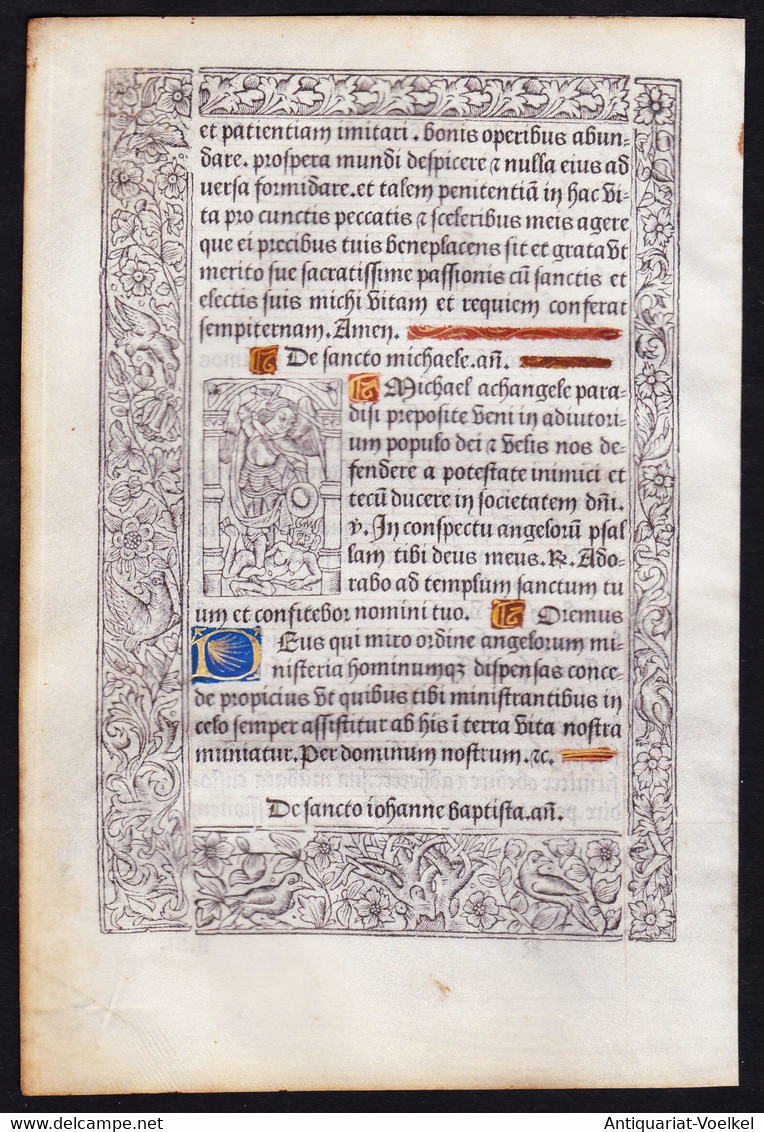 et patientiam imitari . bonis operibus abun-
dare. prospera mundi despicere ⁊ nulla eius ad
versa formidare. et talem penitentiā in hac vi-
ta pro cunctis peccatis ⁊ sceleribus meis agere
que ei precibus tuis beneplacens sit et grata vt
merito sue sacratissime passionis cū sanctis et
electis suis michi vitam et requiem conferat
sempiternam. Amen.
De sancto michaele. an̄.
Michael achangele para-
disi preposite veni in adiutori-
um populo dei ⁊ velis nos de-
fendere a potestate inimici et
tecū ducere in societatem dn̄i.
v. In conspectu angelorū psal
lam tibi deus meus. R. Ado-
rabo ad templum sanctum tu
um et confitebor nomini tuo. Oremus
Deus qui miro ordine angelorum mi-
nisteria hominumqꝫ dispensas conce-
de propicius vt quibus tibi ministrantibus in
celo semper assistitur ab his ī terra vita nostra
muniatur. Per dominum nostrum. ⁊c.
De sancto iohanne baptista. an̄.
Antiquariat-Voelkel
www.delcampe.net